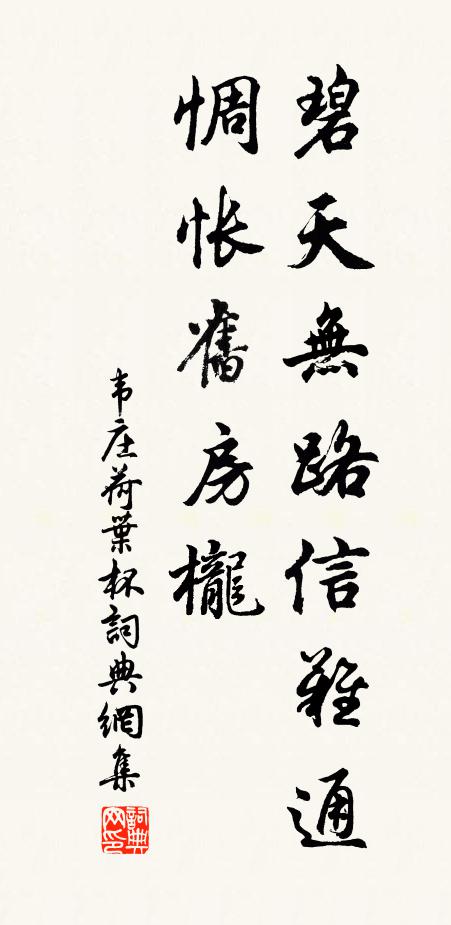 碧天無路信難通
惆悵舊房櫳
韦庄荷葉杯詞典網集
詞典网印